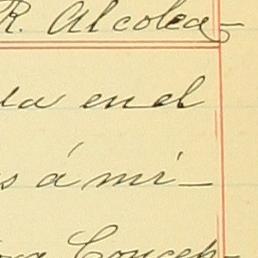 R. Alcolea-
en el
á mi-
Concep-